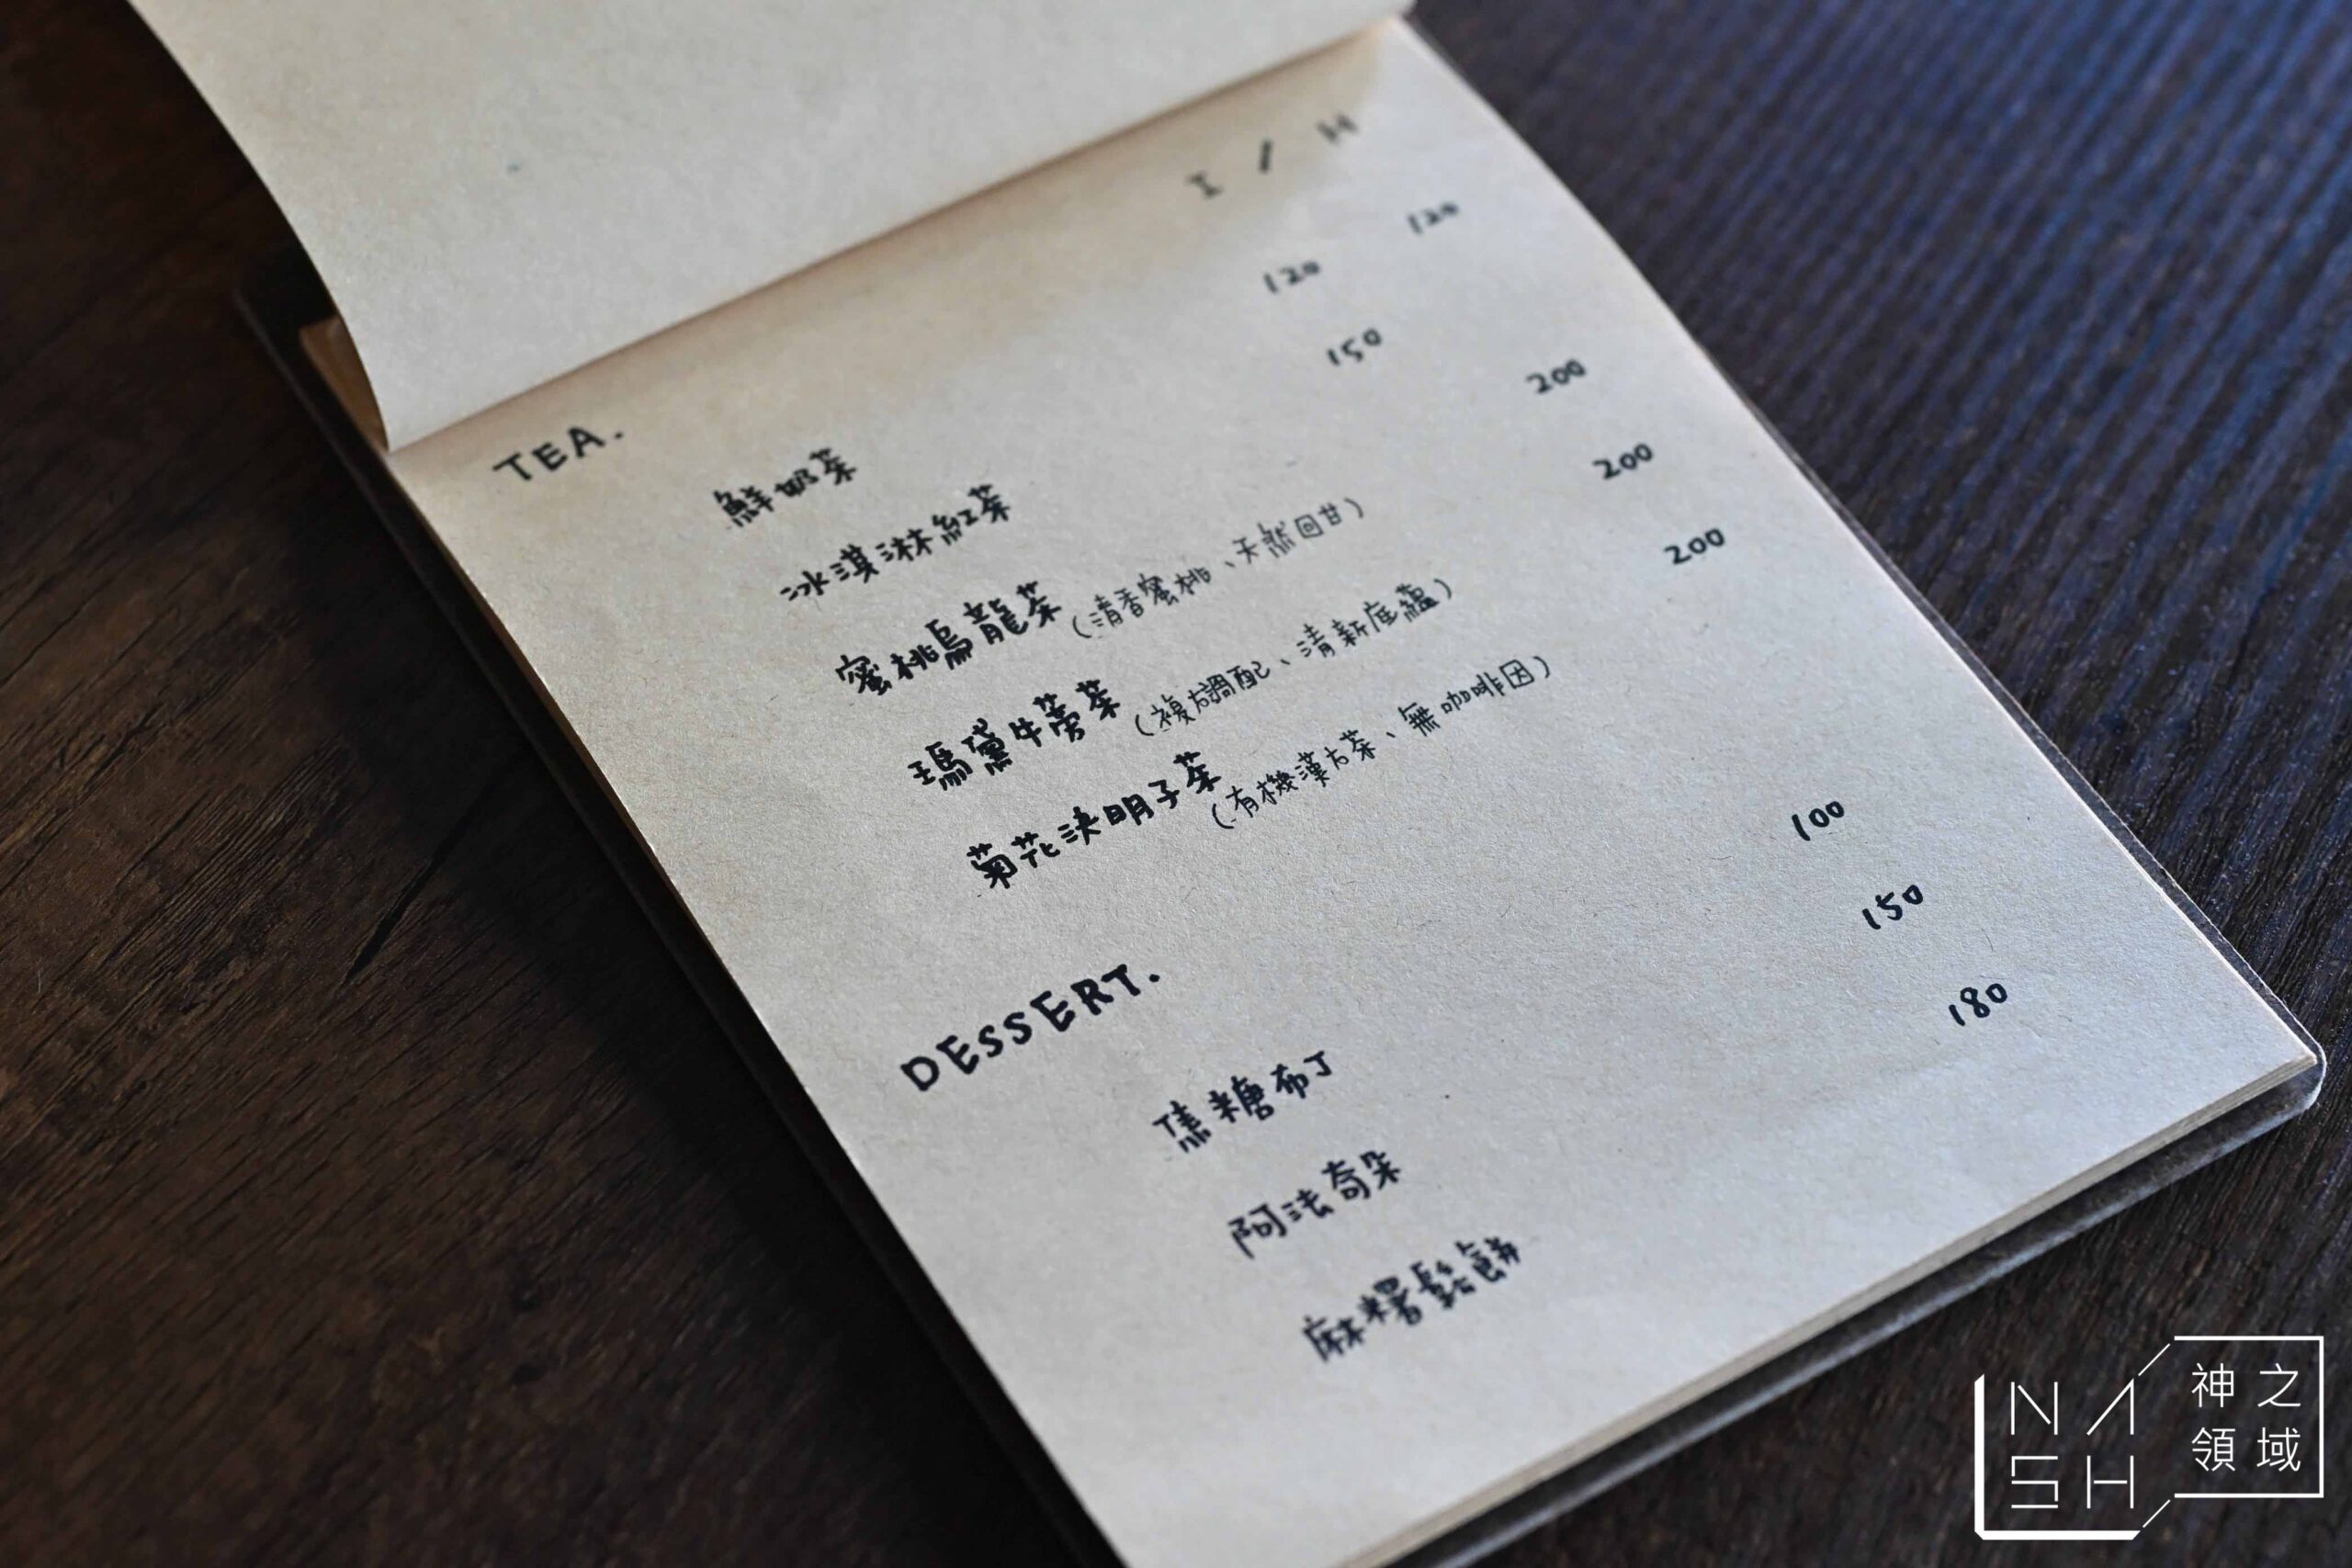 I / H
TEA.
鮮奶茶 120 120
冰淇淋紅茶 150
蜜桃烏龍茶 (清香蜜桃、天然回甘) 200
瑪黛牛蒡茶 (複方調配、清新底蘊) 200
菊花決明子茶 (有機漢方茶、無咖啡因) 200
DESSERT.
焦糖布丁 100
阿法奇朵 150
麻糬鬆餅 180
NASH
神之領域